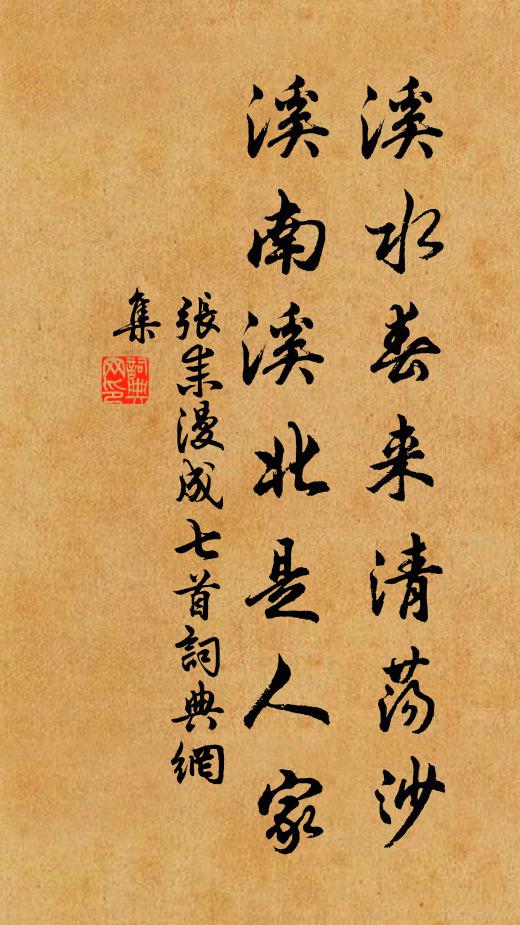 溪水春来清荡沙
溪南溪北是人家
張耒漫成七首詞典網
集
詞典
网印